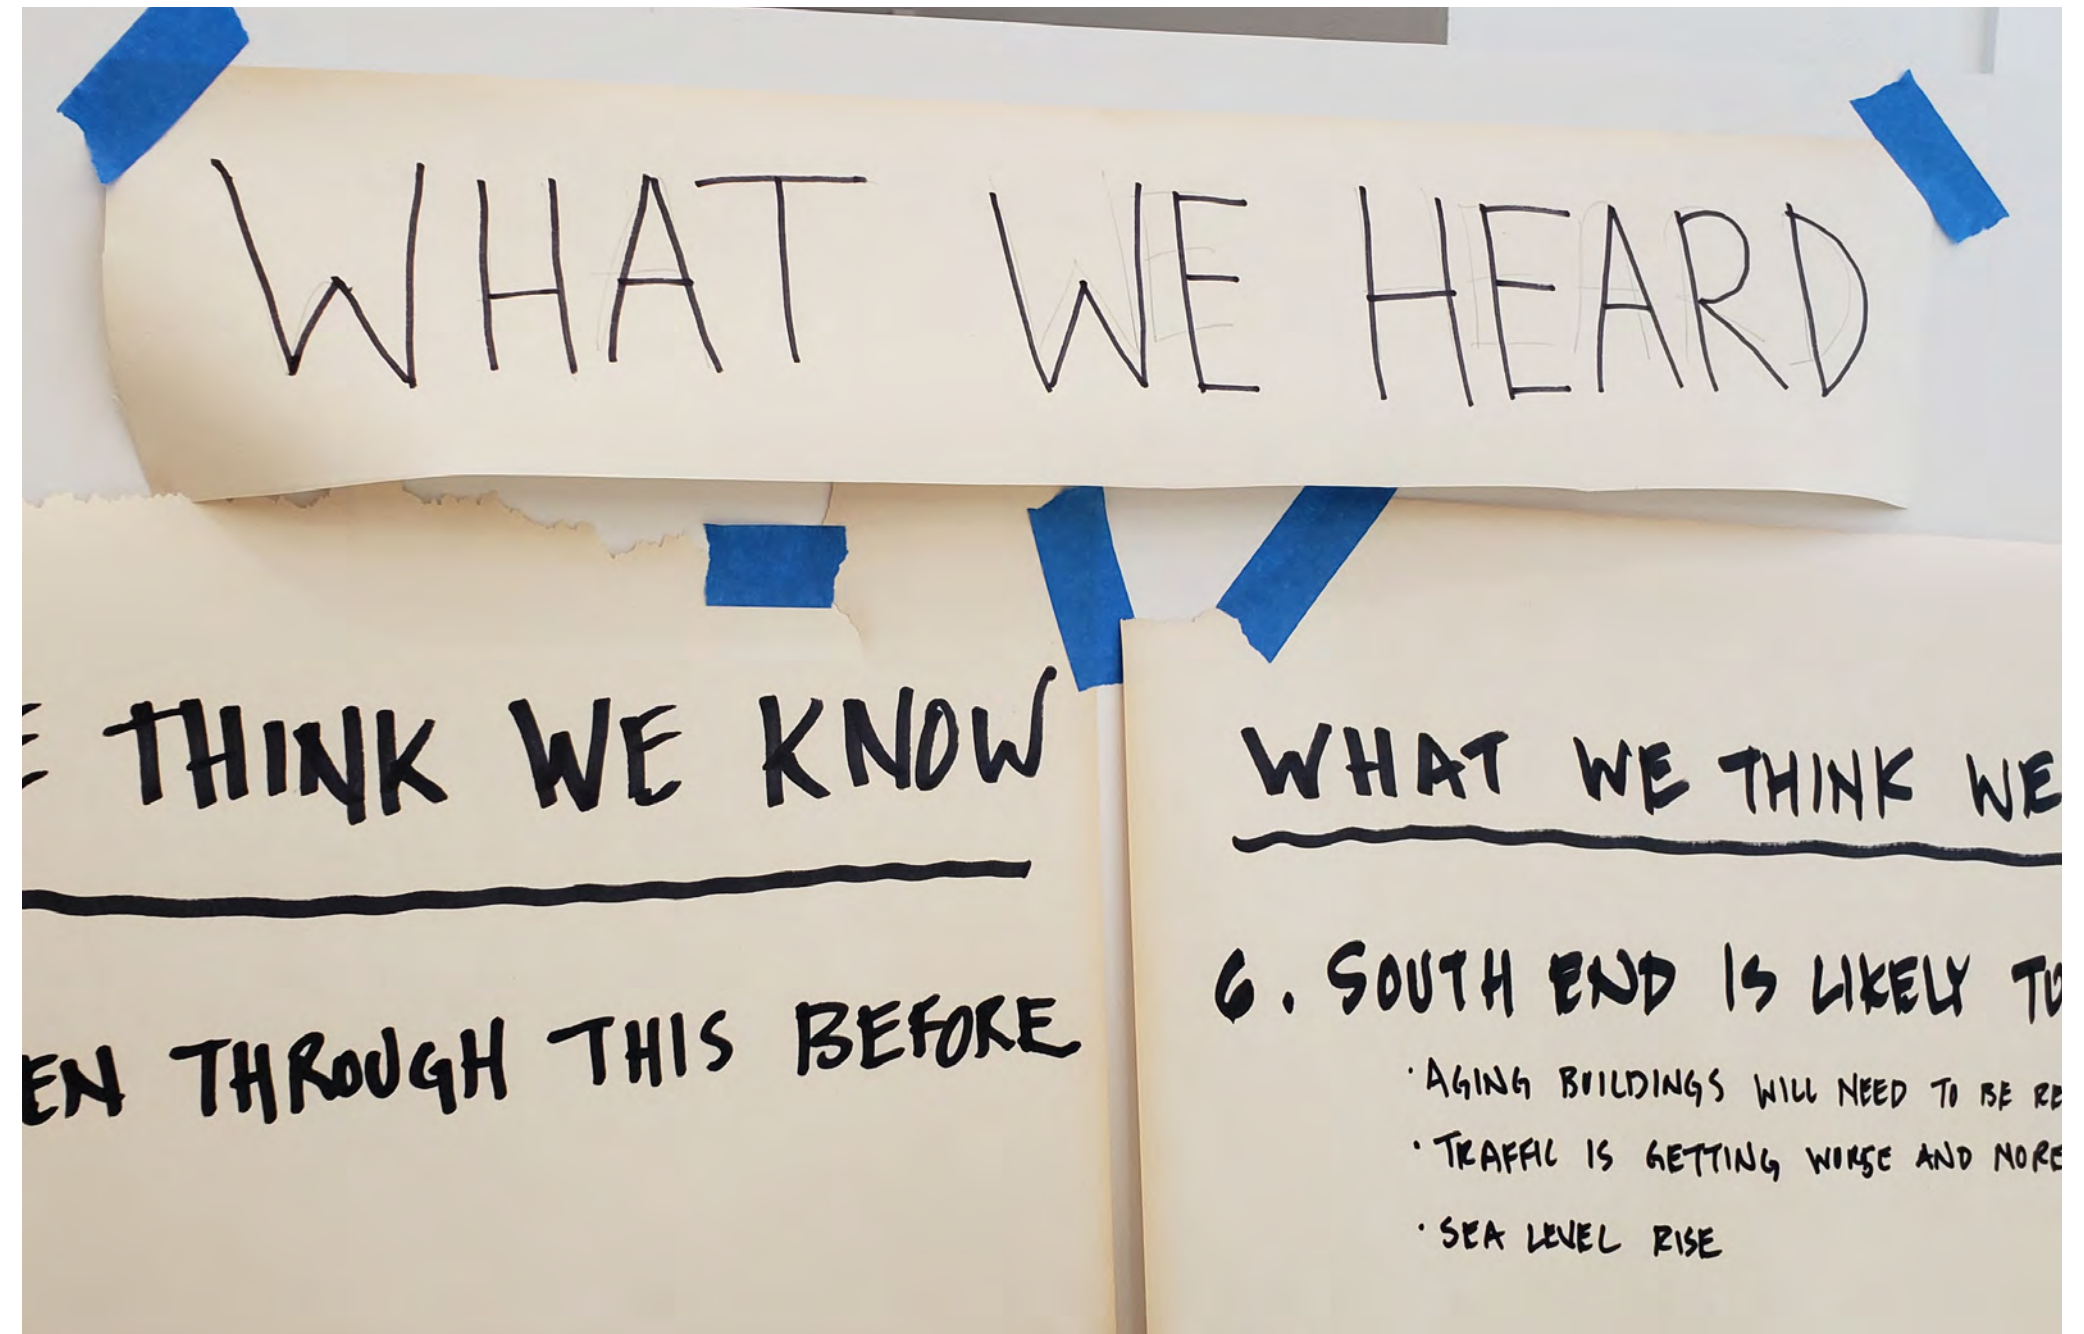 WHAT WE HEARD
E THINK WE KNOW
EN THROUGH THIS BEFORE
WHAT WE THINK WE
6. SOUTH END IS LIKELY TO
· AGING BUILDINGS WILL NEED TO BE RE
· TRAFFIC IS GETTING WORSE AND MORE
· SEA LEVEL RISE